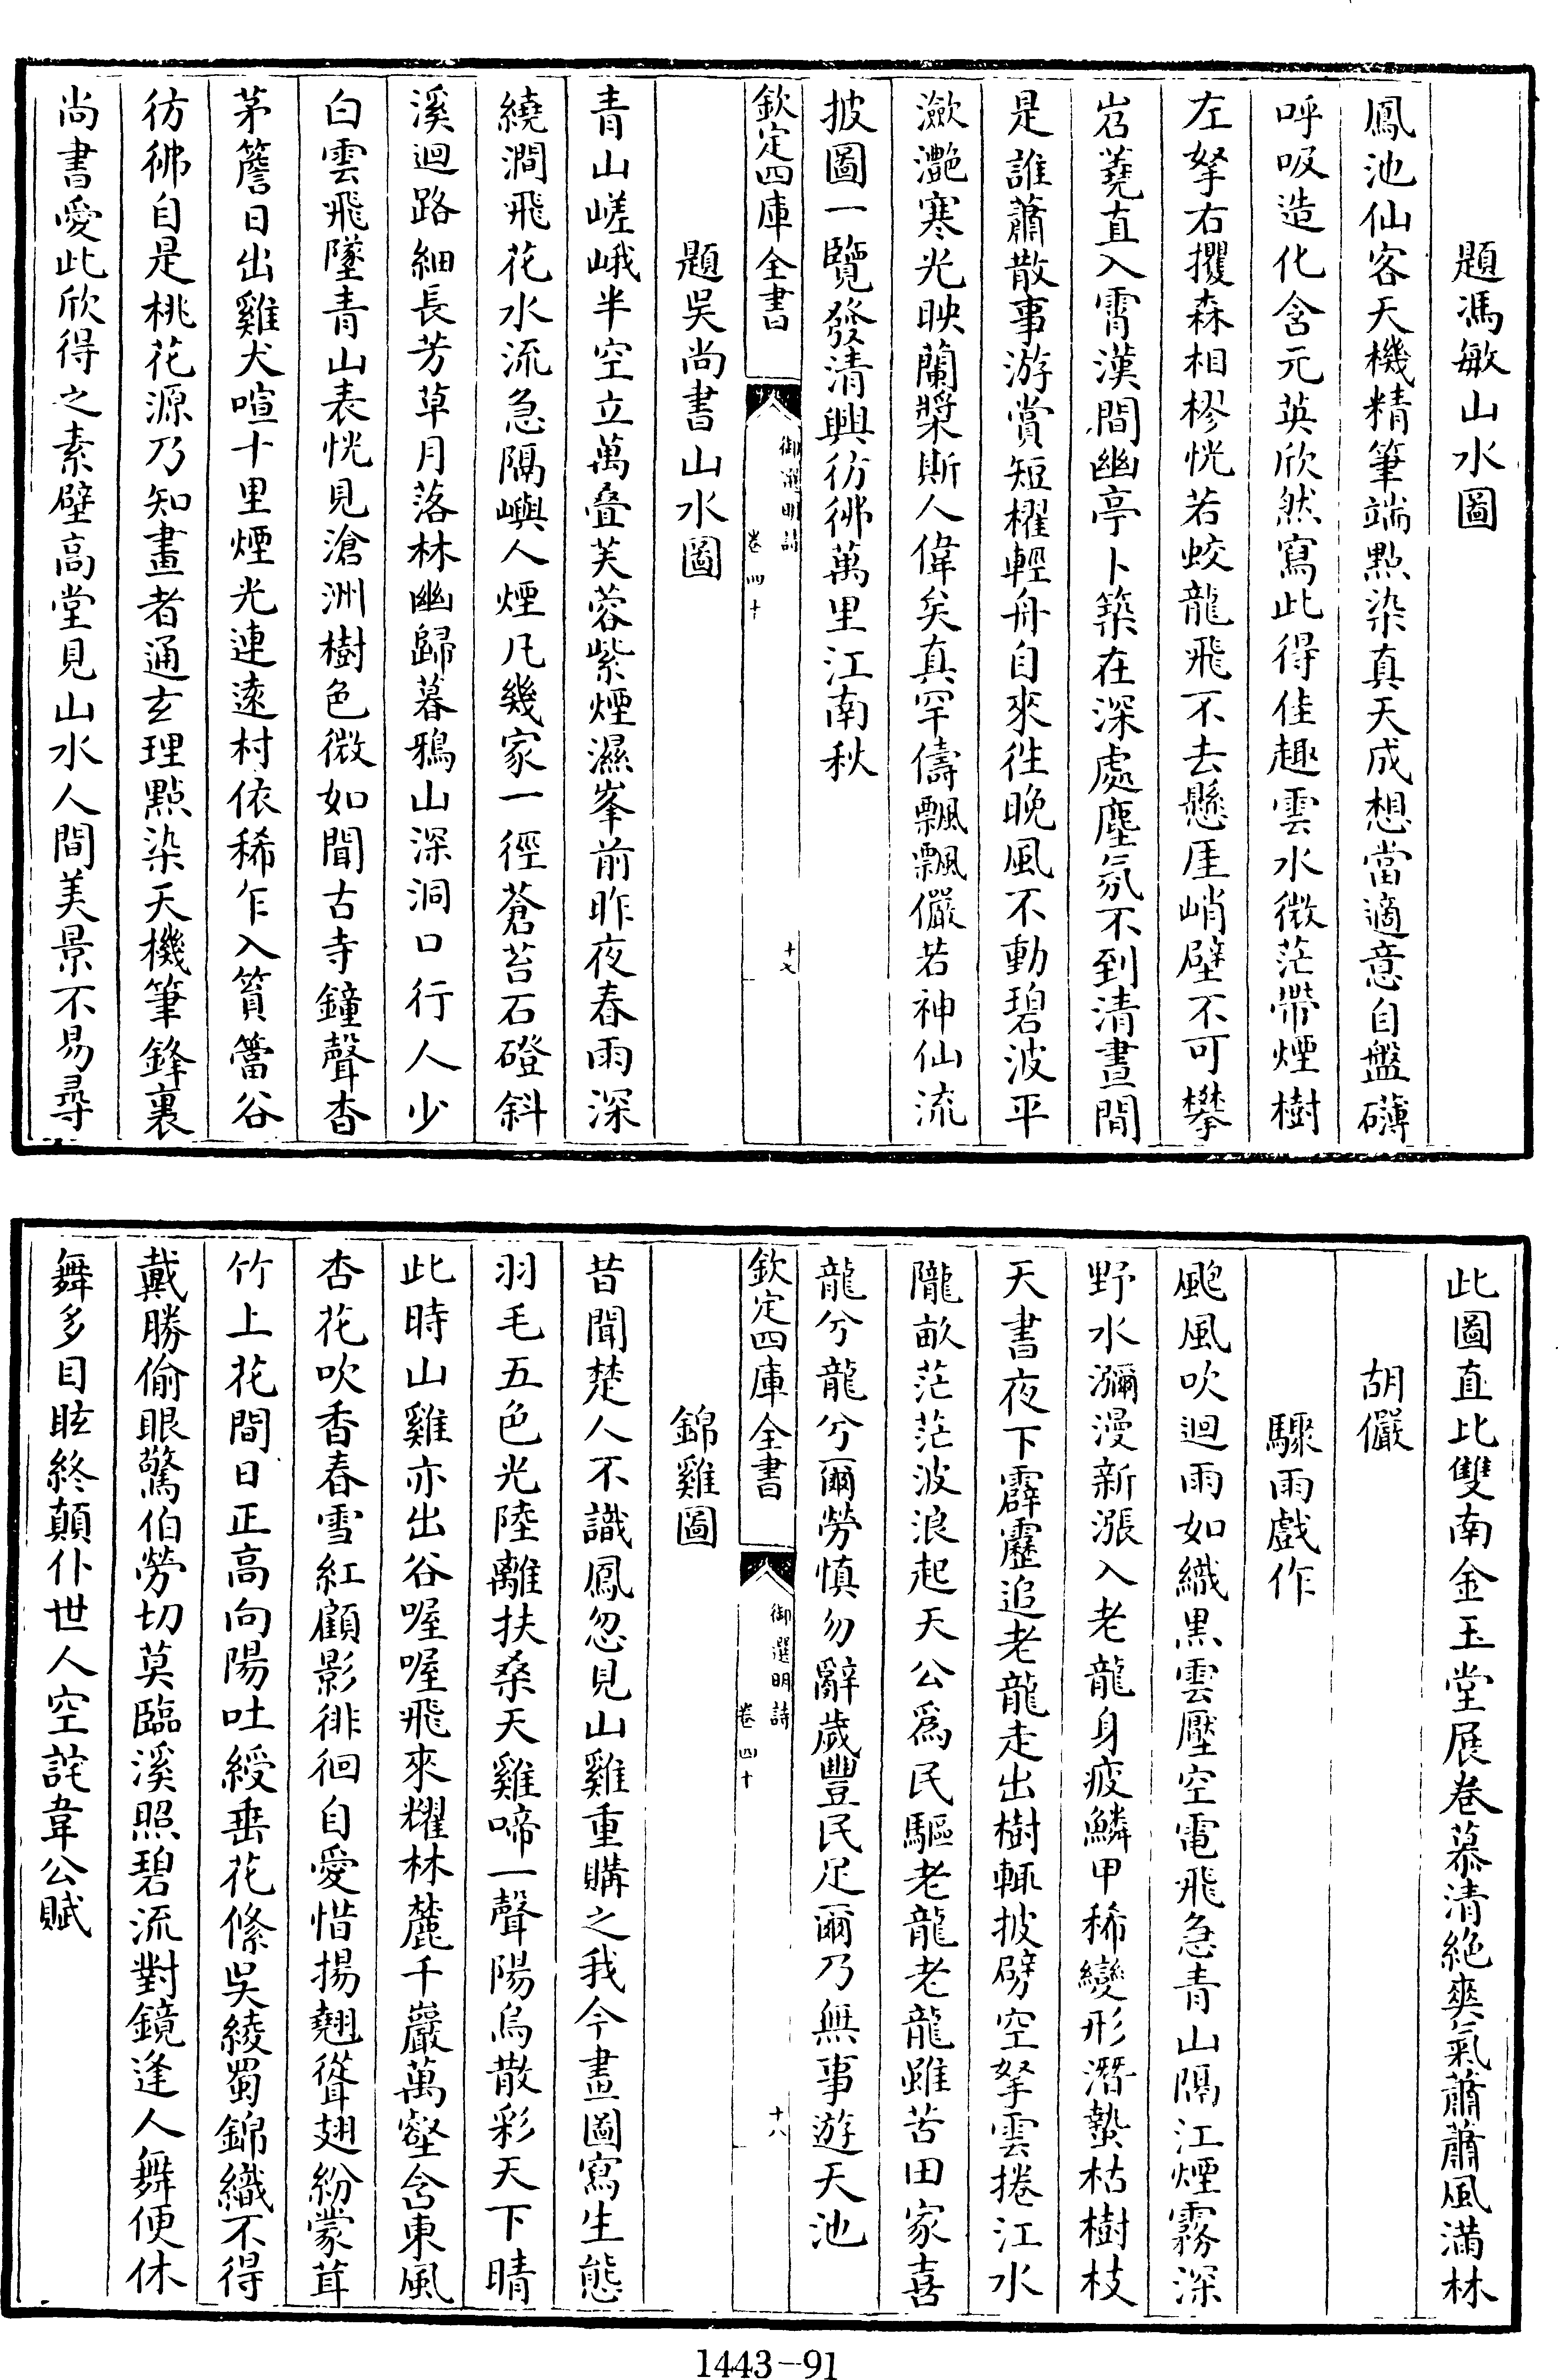 題馮敏山水圖
鳳池仙客天機精筆端點染真天成想當適意自盤礴
呼吸造化含元英欣然寫此得佳趣雲水微茫帶煙樹
左拏右攫森相樛恍若蛟龍飛不去懸厓峭壁不可攀
岧蕘直入霄漢間幽亭卜築在深處塵氛不到清晝閒
是誰蕭散事游賞短櫂輕舟自來往晚風不動碧波平
瀲灩寒光映蘭槳斯人偉矣真罕儔飄飄儼若神仙流
披圖一覽發清興彷彿萬里江南秋
欽定四庫全書
御選明詩
卷四十
十七
題吳尚書山水圖
青山嵯峨半空立萬疊芙蓉紫煙濕峯前昨夜春雨深
繞澗飛花水流急隔嶼人煙凡幾家一徑蒼苔石磴斜
溪迴路細長芳草月落林幽歸暮鴉山深洞口行人少
白雲飛墜青山表恍見滄洲樹色微如聞古寺鐘聲杳
茅簷日出雞犬喧十里煙光連遠村依稀乍入篔簹谷
彷彿自是桃花源乃知畫者通玄理點染天機筆鋒裏
尚書愛此欣得之素壁高堂見山水人間美景不易尋
此圖直比雙南金玉堂展卷慕清絶爽氣蕭蕭風滿林
胡儼
驟雨戲作
颶風吹迴雨如織黑雲壓空電飛急青山隔江煙霧深
野水瀰漫新漲入老龍身疲鱗甲稀變形潛蟄枯樹枝
天書夜下霹靂追老龍走出樹輒披劈空拏雲捲江水
隴畝茫茫波浪起天公為民驅老龍老龍雖苦田家喜
龍兮龍兮爾勞慎勿辭歲豐民足爾乃無事遊天池
欽定四庫全書
御選明詩
卷四十
十八
錦雞圖
昔聞楚人不識鳳忽見山雞重購之我今畫圖寫生態
羽毛五色光陸離扶桑天雞啼一聲陽烏散彩天下晴
此時山雞亦出谷喔喔飛來耀林麓千巖萬壑含東風
杏花吹香春雪紅顧影徘徊自愛惜揚翹聳翅紛蒙茸
竹上花間日正高向陽吐綬垂花絛吳綾蜀錦織不得
戴勝偷眼驚伯勞切莫臨溪照碧流對鏡逢人舞便休
舞多目眩終顛仆世人空詫韋公賦
1443-91